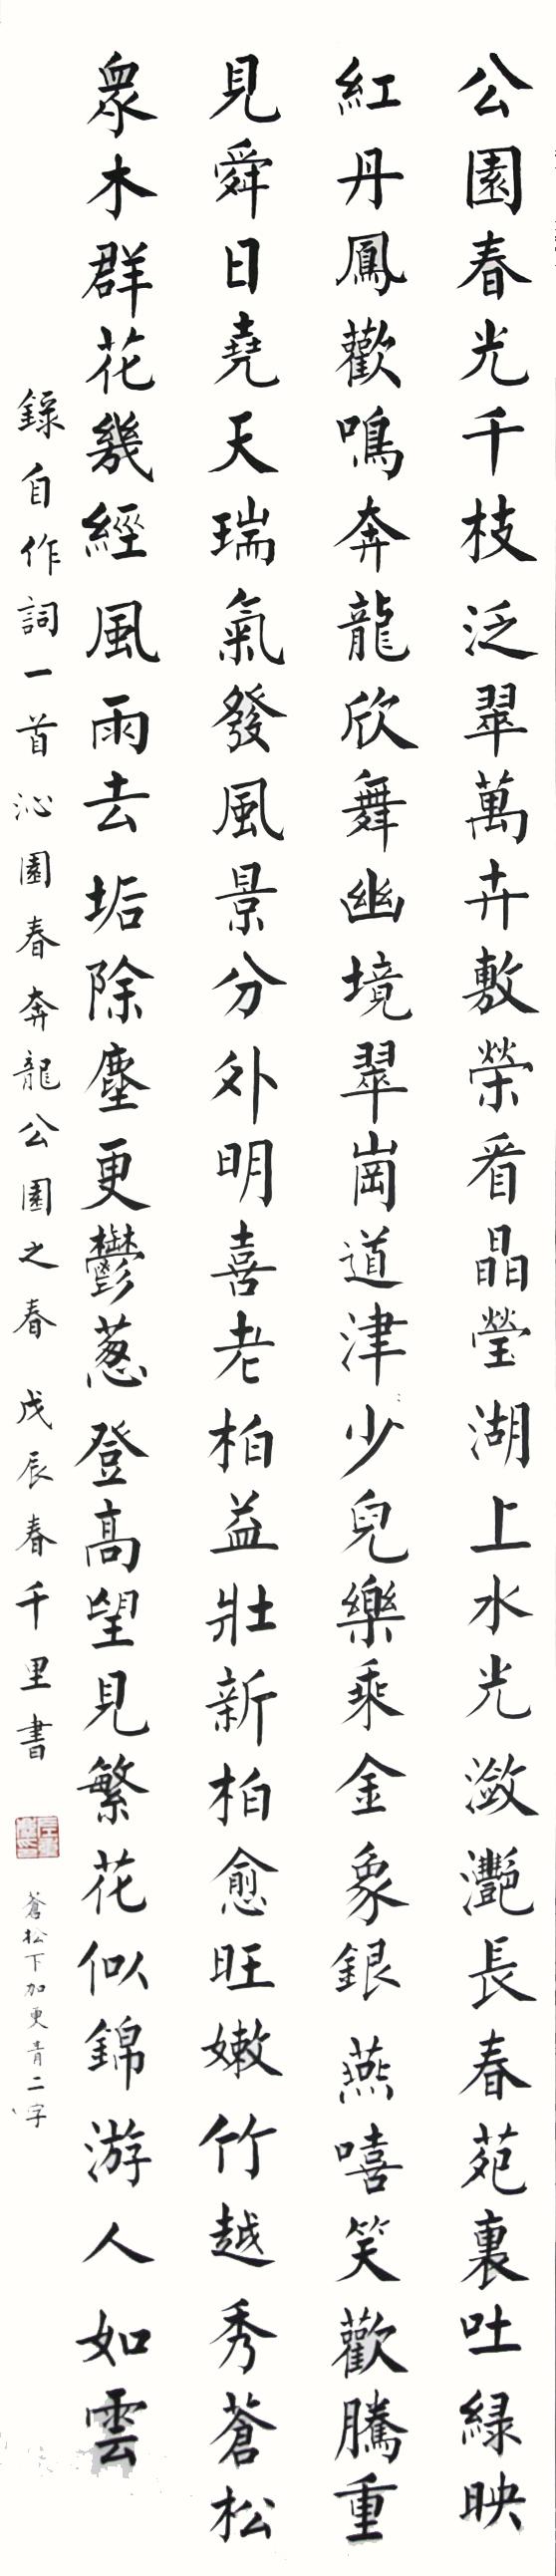 公園春光千枝泛翠萬卉敷榮看晶瑩湖上水光瀲灧長春苑裏吐緑映
紅丹鳳歡鳴奔龍欣舞幽境翠崗道津少兒樂乘金象銀燕嘻笑歡騰重
見舜日堯天瑞氣發風景分外明喜老柏益壯新柏愈旺嫩竹越秀蒼松
衆木群花幾經風雨去垢除塵更鬱葱登高望見繁花似錦游人如雲
錄自作詞一首沁園春奔龍公園之春 戊辰春千里書
蒼松下加更青二字